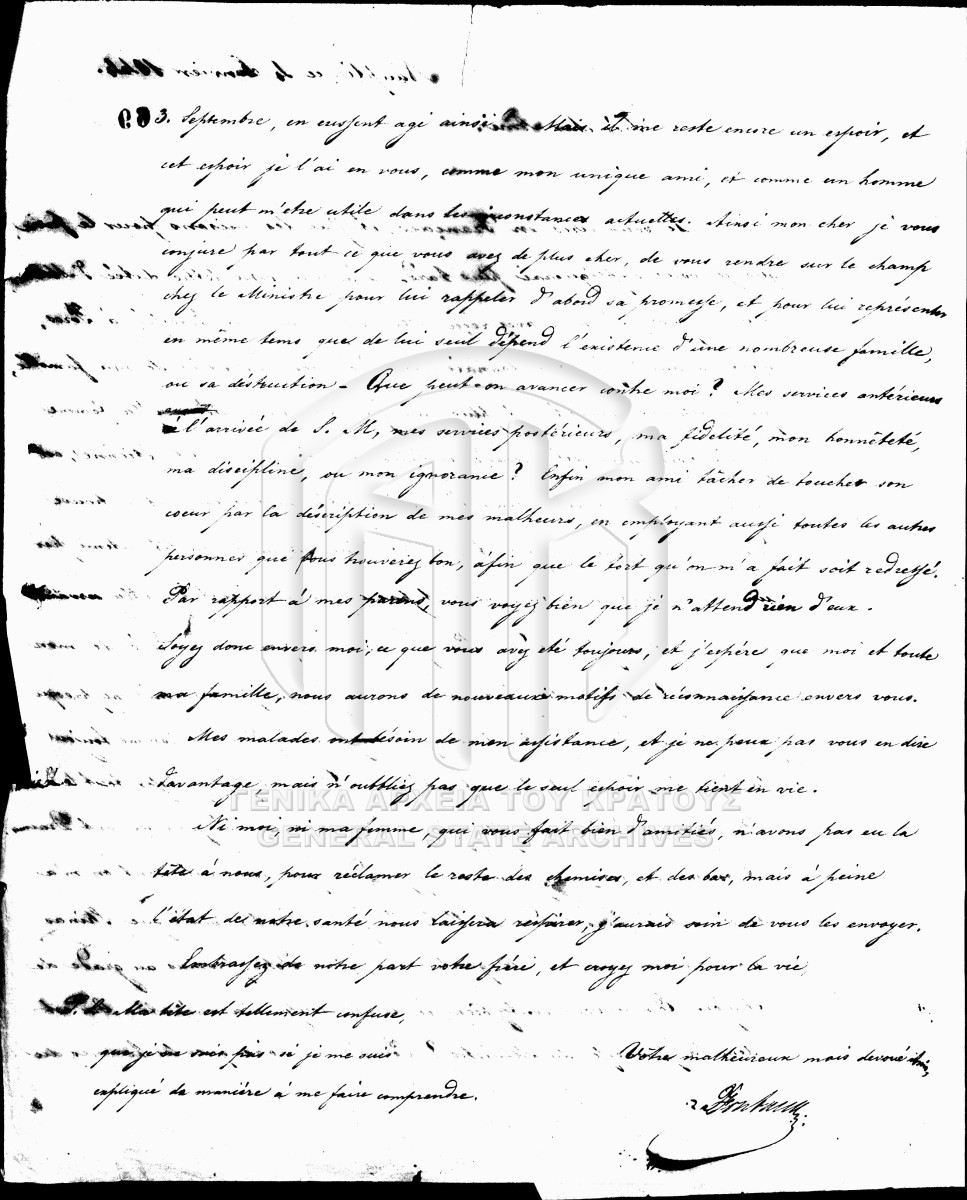 3. Septembre, en eussent agi ainsi. Mais il me reste encore un espoir, et
cet espoir je l'ai en vous, comme mon unique ami, et comme un homme
qui peut m'etre utile dans les circonstances actuelles. Ainsi mon cher je vous
conjure par tout ce que vous avez de plus cher, de vous rendre sur le champ
chez le Ministre pour lui rappeler d'abord sa promesse, et pour lui représenter
en même tems que de lui seul dépend l'existence d'une nombreuse famille,
ou sa déstruction - Que peut-on avancer contre moi? Mes services antérieurs
à l'arrivée de S. M, mes services postérieurs, ma fidelité, mon honnêteté,
ma discipline, ou mon ignorance? Enfin mon ami tâcher de toucher son
coeur par la déscription de mes malheurs, en employant aussi toutes les autres
personnes que vous trouverez bon, àfin que le tort qu'on m'a fait soit redressé.
Par rapport à mes parens, vous voyez bien que je n'attend rien d'eux.
Soyez donc envers moi, ce que vous avez eté toujours, et j'espére que moi et toute
ma famille, nous aurons de nouveaux motifs de réconnaissance envers vous.
Mes malades ont bésoin de mon assistance, et je ne peux pas vous en dire
davantage, mais n'oubbliez pas que le seul espoir me tient en vie.
ΓΕΝΙΚΑ ΑΡΧΕΙΑ ΤΟΥ ΚΡΑΤΟΥΣ
Ni moi, ni ma femme, qui vous fait bien d'amitiés, n'avons pas eu la
GENERAL STATE ARCHIVES
tête à nous, pour réclamer le reste des chemises, et des bas, mais à peine
l'état de notre santé nous laissera respirer, j'aurais soin de vous les envoyer.
Embrassez de nôtre part votre frére, et croyez moi pour la vie,
P. S. Ma tête est tellement confuse,
que je ne sais pas si je me suis
expliqué de maniére à me faire comprendre.
Votre malheureux mais devoué ami,